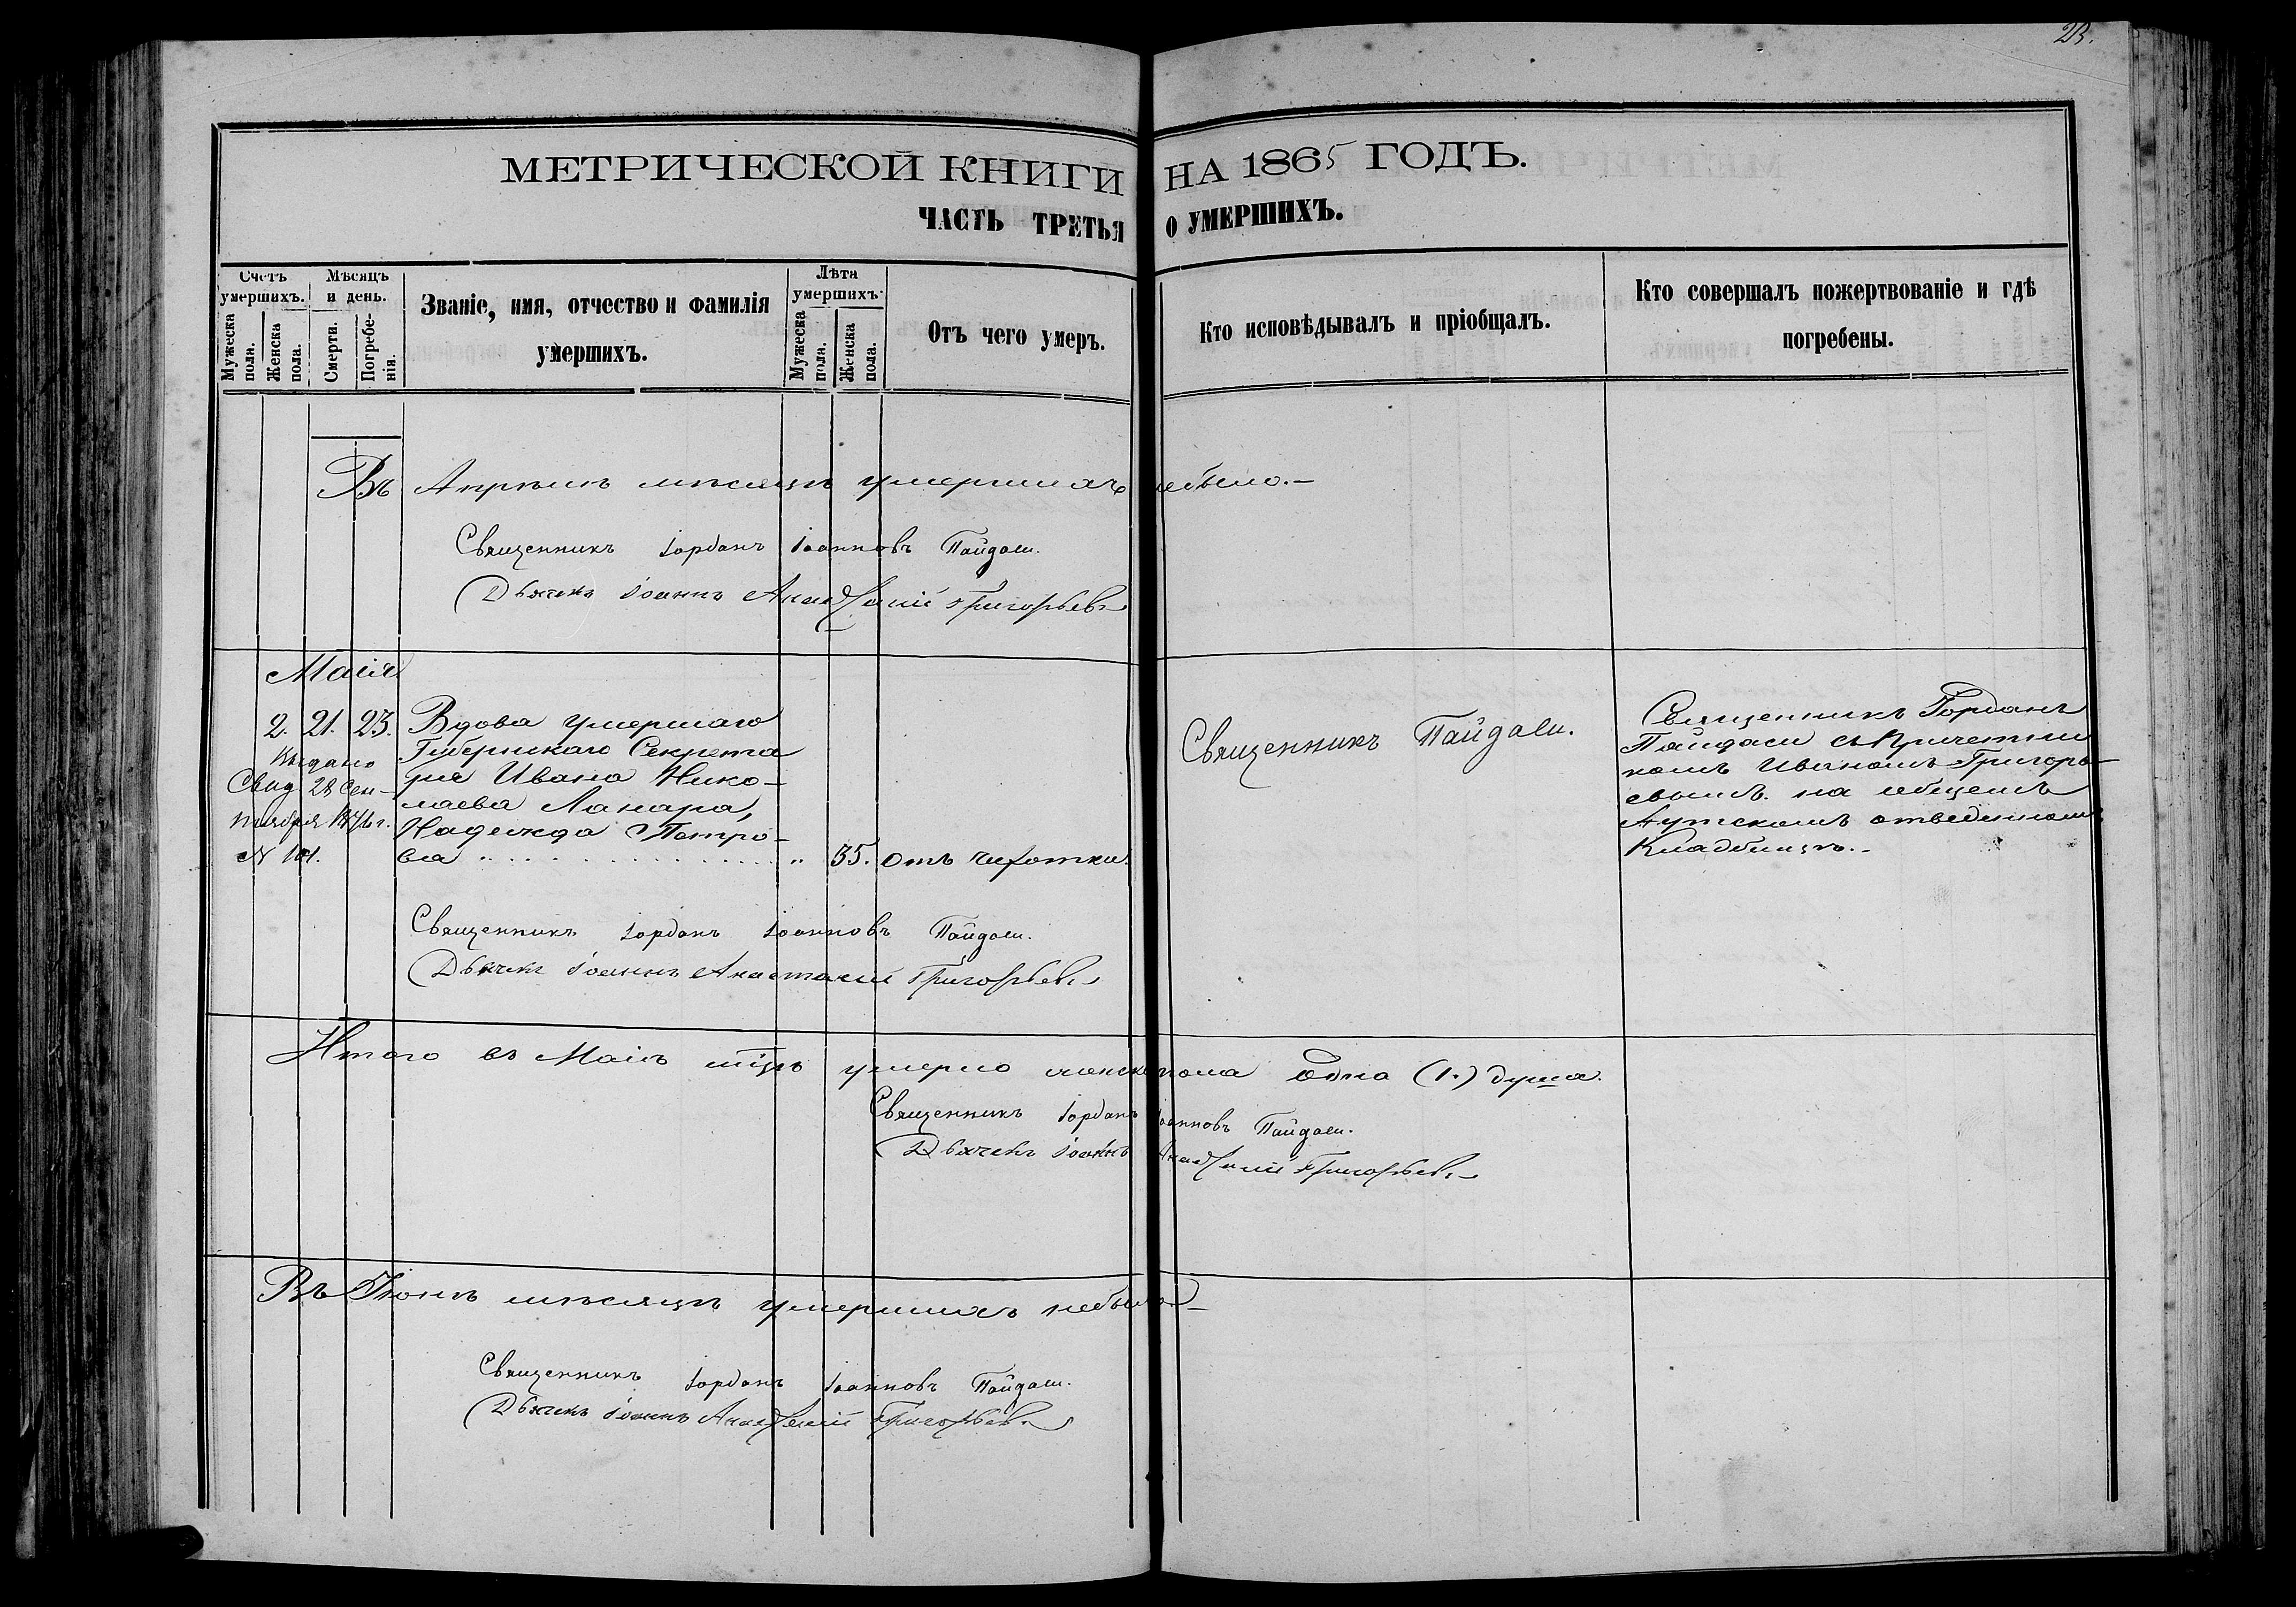 23.
МЕТРИЧЕСКОЙ КНИГИ НА 1865 ГОДЪ.
ЧАСТЬ ТРЕТЬЯ О УМЕРШИХЪ.
Счетъ умершихъ.
Мужеска пола.
Женска пола.
Мѣсяцъ и день.
Смерти.
Погребенія.
Званіе, имя, отчество и фамилія
умершихъ.
Лѣта умершихъ
Мужеска пола.
Женска пола.
Отъ чего умеръ.
Кто исповѣдывалъ и пріобщалъ.
Кто совершалъ пожертвованіе и гдѣ
погребены.
Въ Апрѣлѣ мѣсяцѣ умершихъ небыло.-
Священникъ Іорданъ Іоанновъ Пайдаси.
Дьячекъ Іоаннъ Анастасій Григорьевъ
Маія
2. 21. 23. Вдова умершаго
Губернскаго Секрета
ря Ивана Нико-
лаева Ланара,
Надежда Петро-
ва " 35. отъ чахотки.
Выдано
Свид 28 Сен-
тября 1876 г.
N 101.
Священникъ Пайдаси.
Священникъ Іорданъ
Пайдаси съ Причетни
комъ Иваномъ Григорь-
евымъ. на общемъ
Аутскомъ отведенномъ
Кладбищѣ.-
Священникъ Іорданъ Іоанновъ Пайдаси.
Дьячекъ Іоаннъ Анастасій Григорьевъ
Итого въ Маіѣ мцѣ умерло женск пола Одна (1.) душа.
Священникъ Іорданъ Іоанновъ Пайдаси.
Дьячекъ Іоаннъ Анастасій Григорьевъ
Въ Іюнѣ мѣсяцѣ умершихъ небыло-
Священникъ Іорданъ Іоанновъ Пайдаси.
Дьячекъ Іоаннъ Анастасій Григорьевъ